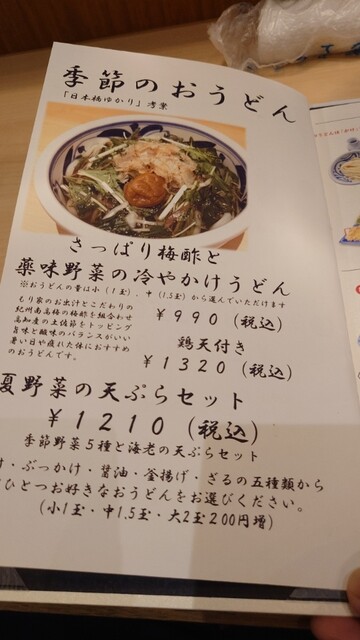 季節のおうどん
「日本橋ゆかり」考案
さっぱり梅酢と
薬味野菜の冷やかけうどん
※おうどんの量は小(1玉)、中(1.5玉)から選んでいただけます
もり家のお出汁とこだわりの
紀州南高梅の梅酢を組合わせ
高知産の土佐節をトッピング
旨味と酸味のバランスがいい
暑い日や疲れた体におすすめ
のおうどんです。
¥990(税込)
鶏天付き
¥1320(税込)
夏野菜の天ぷらセット
¥1210(税込)
季節野菜5種と海老の天ぷらセット
け・ぶっかけ・醤油・釜揚げ・ざるの五種類から
ひとつお好きなおうどんをお選びください。
(小1玉・中1.5玉・大2玉200円増)